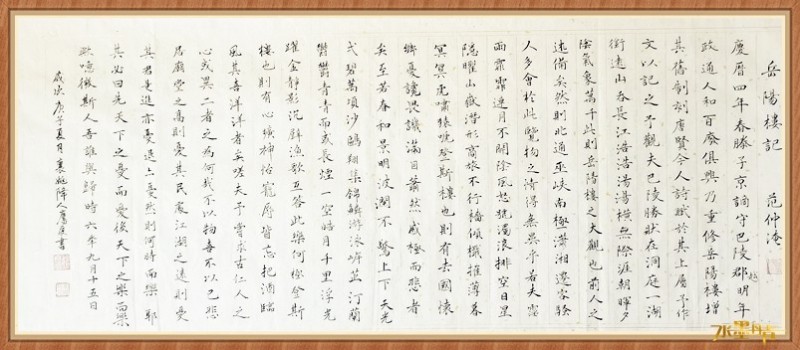 岳陽樓記 范仲淹
慶曆四年春滕子京謫守巴陵郡明年
越
政通人和百廢俱興乃重修岳陽樓增
其舊制刻唐賢今人詩賦於其上屬予作
文以記之予觀夫巴陵勝狀在洞庭一湖
銜遠山吞長江浩浩湯湯橫無際涯朝暉夕
陰氣象萬千此則岳陽樓之大觀也前人之
述備矣然則北通巫峽南極瀟湘遷客騷
人多會於此覽物之情得無異乎若夫霪
雨霏霏連月不開陰風怒號濁浪排空日星
隱曜山嶽潛形商旅不行檣傾楫摧薄暮
冥冥虎嘯猿啼登斯樓也則有去國懷
鄉憂讒畏譏滿目蕭然感極而悲者
矣至若春和景明波瀾不驚上下天光
弌碧萬頃沙鷗翔集錦鱗游泳岸芷汀蘭
鬱鬱青青而或長煙一空皓月千里浮光
躍金靜影沉璧漁歌互答此樂何極登斯
樓也則有心曠神怡寵辱皆忘把酒臨
風其喜洋洋者矣嗟夫予嘗求古仁人之
心或異二者之為何哉不以物喜不以己悲
居廟堂之高則憂其民處江湖之遠則憂
其君是進亦憂退亦憂然則何時而樂耶
其必曰先天下之憂而憂後天下之樂而樂
歟噫微斯人吾誰與歸時六年九月十五日
歲次庚子夏月 人 書
水墨丹青